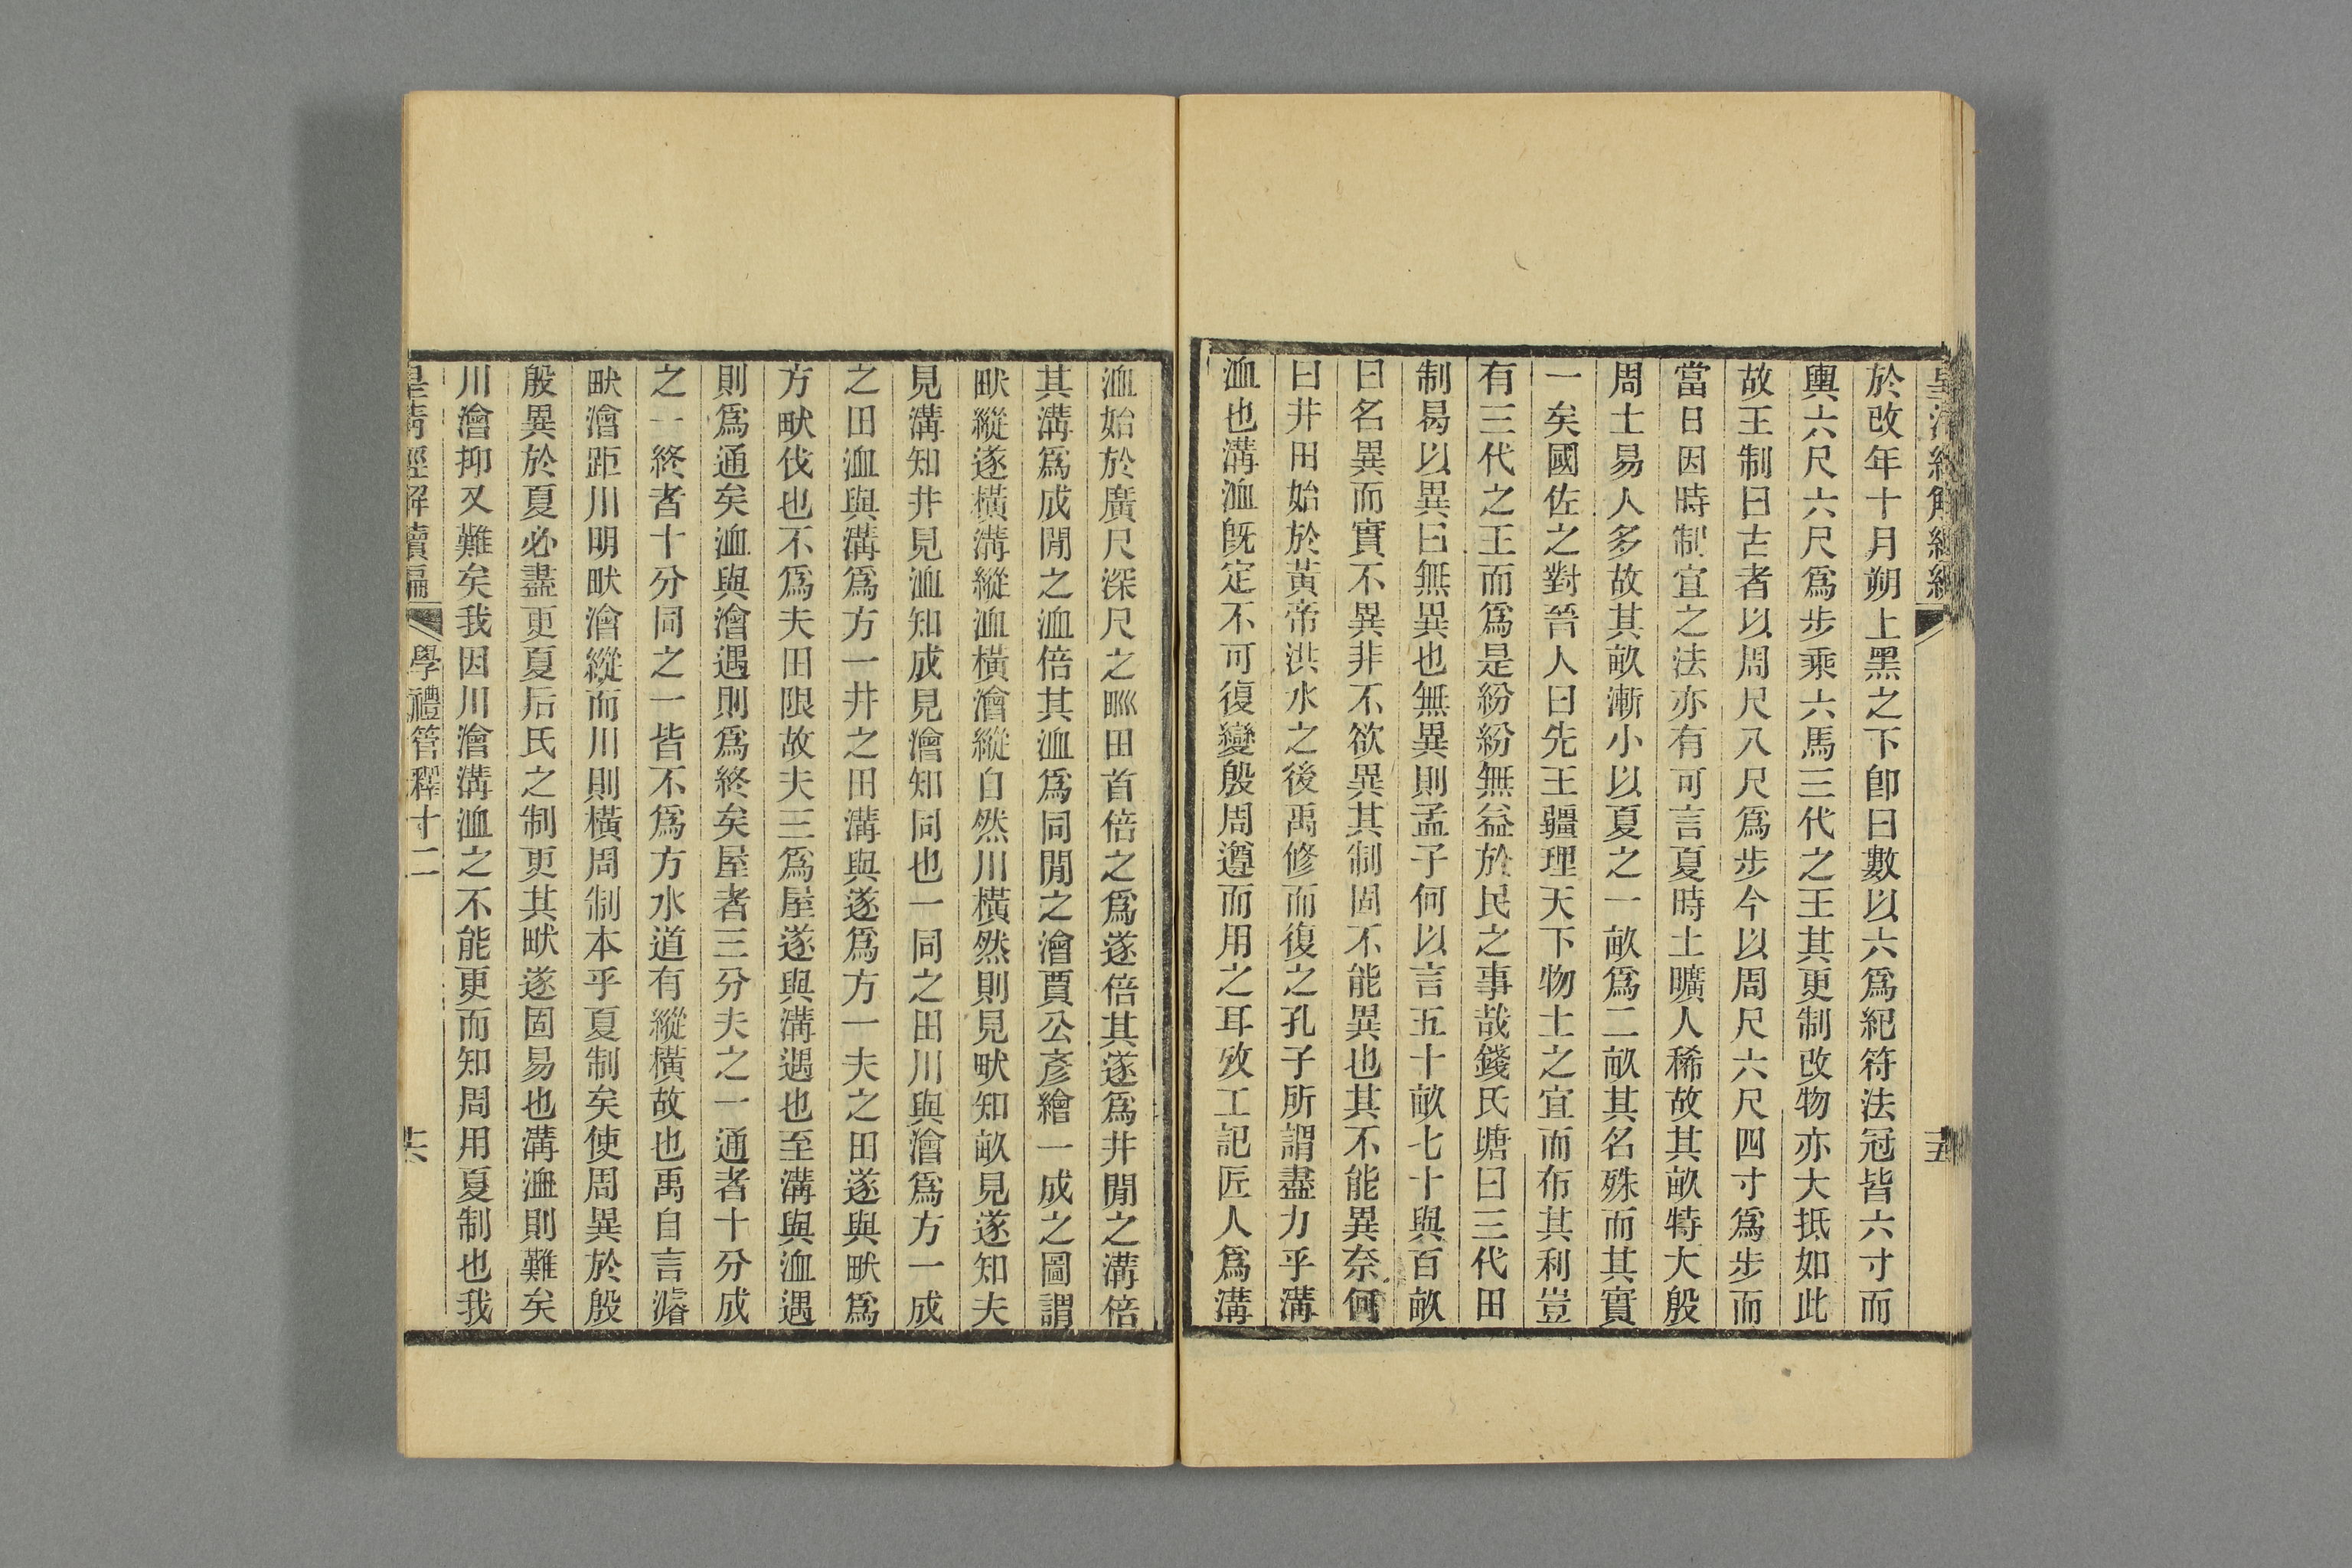 於改年十月朔上黑之下卽曰數以六爲紀符法冠皆六寸而
輿六尺六尺爲步乘六馬三代之王其更制改物亦大抵如此
故王制曰古者以周尺八尺爲步今以周尺六尺四寸爲步而
當日因時制宜之法亦有可言夏時土曠人稀故其畝特大殷
周土易人多故其畝漸小以夏之一畝爲二畝其名殊而其實
一矣國佐之對晉人曰先王疆理天下物土之宜而布其利豈
有三代之王而爲是紛紛無益於民之事哉錢氏塘曰三代田
制曷以異曰無異也無異則孟子何以言五十畝七十與百畝
曰名異而實不異非不欲異其制固不能異也其不能異奈何
曰井田始於黃帝洪水之後禹修而復之孔子所謂盡力乎溝
洫也溝洫旣定不可復變殷周遵而用之耳攷工記匠人爲溝
洫始於廣尺深尺之畖田首倍之爲遂倍其遂爲井閒之溝倍
其溝爲成閒之洫倍其洫爲同閒之澮賈公彥繪一成之圖謂
畎縱遂橫溝縱洫橫澮縱自然川橫然則見畎知畝見遂知夫
見溝知井見洫知成見澮知同也一同之田川與澮爲方一成
之田洫與溝爲方一井之田溝與遂爲方一夫之田遂與畎爲
方畎伐也不爲夫田限故夫三爲屋遂與溝遇也至溝與洫遇
則爲通矣洫與澮遇則爲終矣屋者三分夫之一通者十分成
之一終者十分同之一皆不爲方水道有縱橫故也禹自言濬
畎澮距川明畎澮縱而川則橫周制本乎夏制矣使周異於殷
殷異於夏必盡更夏后氏之制更其畎遂固易也溝洫則難矣
川澮抑又難矣我因川澮溝洫之不能更而知周用夏制也我
皇淸經解續編 學禮管釋十二 十六